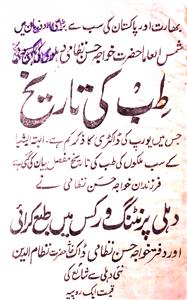 بھارت اور پاکستان کی سب سے بڑی اور زبان میں
شمس العلما حضرت خواجہ حسن نظامی دہلوی کی لکھی ہوئی
طب کی تاریخ
جس میں یورپ کی ڈاکٹری کا ذکر کم ہے۔ البتہ ایشیا
کے سب ملکوں کی طب کی تاریخ مفصل بیان کی گئی ہے
فرزندان خواجہ حسن نظامی نے
دہلی پرنٹنگ ورکس میں طبع کرائی
اور دفتر خواجہ حسن نظامی ڈاکخانہ حضرت نظام الدین
نئی دہلی سے شائع کی
قیمت ایک روپیہ